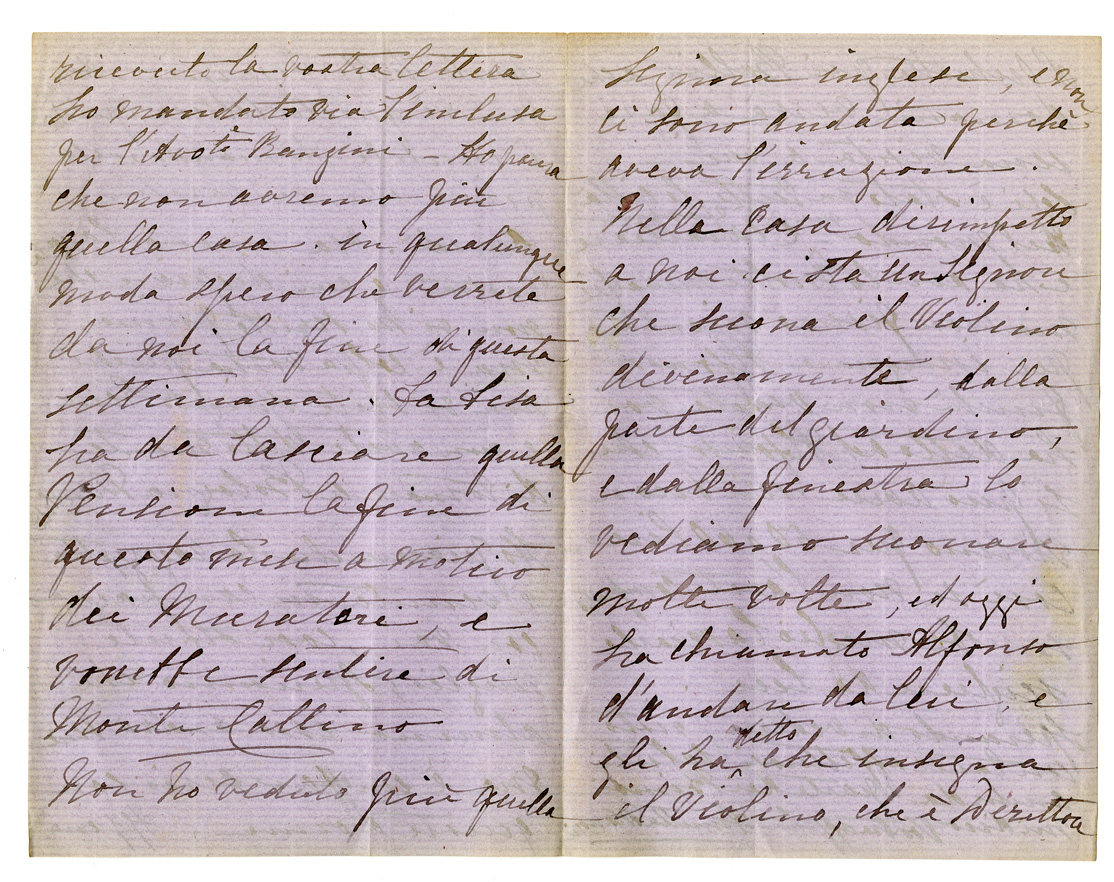 ricevuto la vostra lettera
ho mandato via l'inclusa
per l'Avoti Banzini - Ho paura
che non avremo più
quella casa. in qualunque
modo spero che verrete
da noi la fine di questa
settimana. La Lisa
ha da lasciare quella
Pensione la fine di
questo mese a motivo
dei Muratori, e
vorrebbe sentire di
Monte Cattino
Non ho veduto più quella
signora inglese, e non
ci sono andata perchè
aveva l'irruzione.
Nella Casa dirimpetto
a noi ci sta un Signore
che suona il Violino
divinamente, dalla
parte del giardino,
e dalla finestra lo
vediamo suonare
molte volte, ed oggi
ha chiamato Alfonso
d'andare da lui, e
gli ha detto che insegna
il Violino, che è Direttore